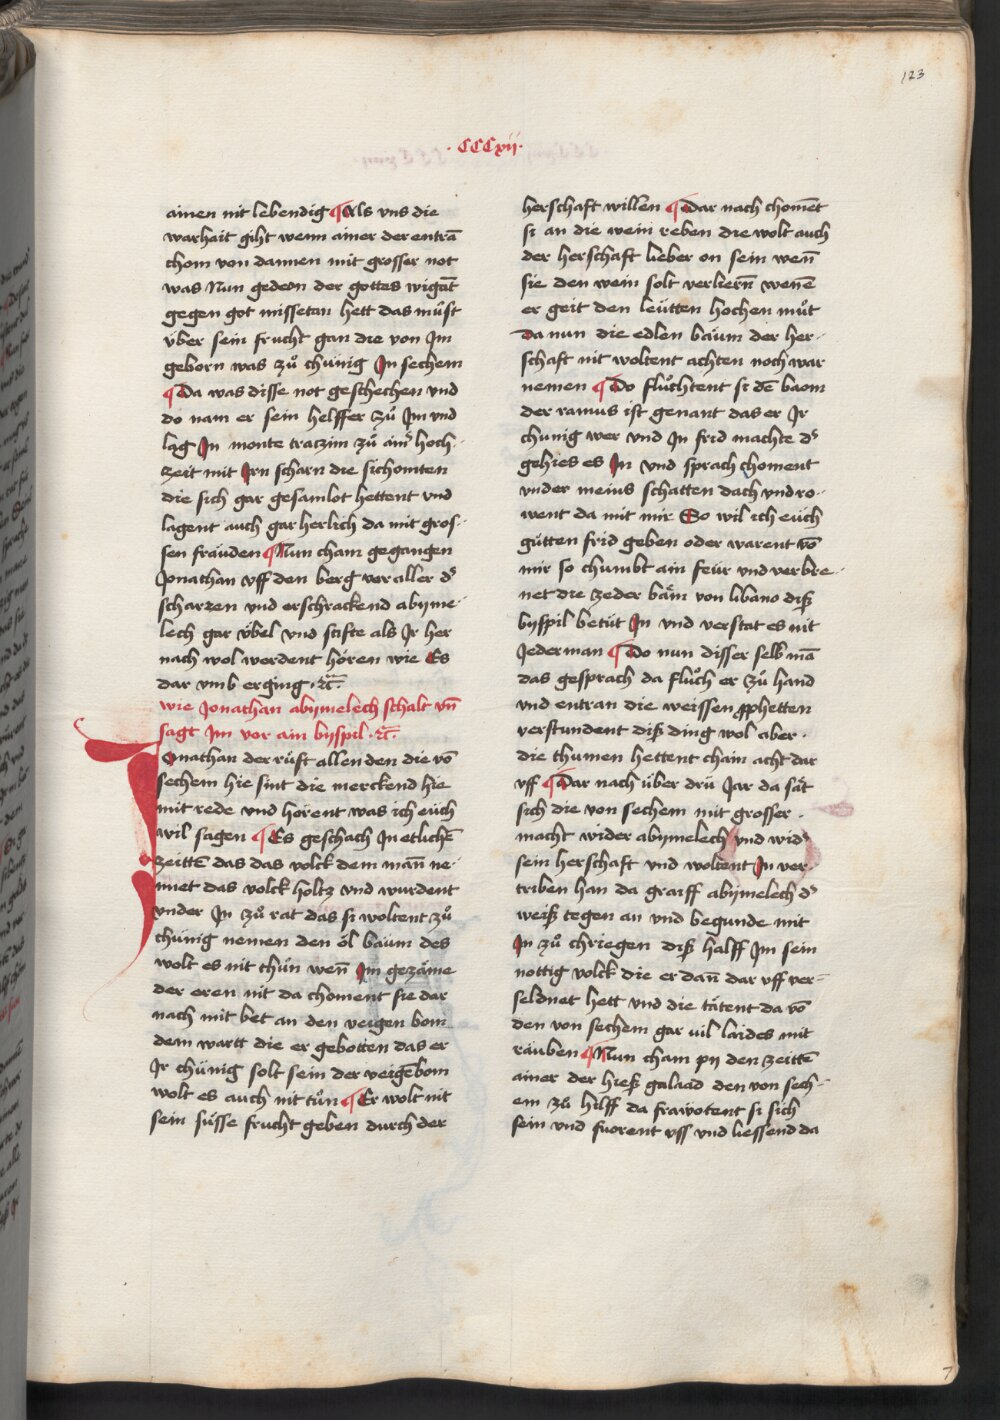 123
· CCCxij ·
ainen nit lebendig ¶ Als vns die
warhait giht wenn ainer der entrā
chom von dannen mit grosser not
was Nun gedeon der gottes wigāt
gegen got missetan hett das můst
v̈ber sein frucht gan die von Im
geborn was zů chünig In sechem
¶ Da was disse not geschechen vnd
do nam er sein helffer zů Im vnd
lag In monte tratzim zů ainr hoch-
zeit mit Irn scharn die sichomten
die sich gar gesamlot hettent vnd
lagent auch gar herlich da mit gros-
sen fräuden ¶ Nun cham gegangen
Jonathan vff den berg vor aller d͛
scharzen vnd erschrackend abyme-
lech gar v̈bel vnd stifte als Ir her
nach wol werdent hören wie Es
dar vmb erging · ꝛc̄ ·
wie Jonathan abymelech schalt vn̄
sagt Im vor ain byspil · ꝛc̄ ·
Jonathan der rüft allen den die vō
sechem hie sint die merckend hie
mit rede vnd hörent was ich eüch
wil sagen ¶ Es geschach In etlichē
zeittē das das volck dem man̄ ne-
nnet das volck holtz vnd wurdent
vnder In zů rat das si woltent zů
chünig nemen den öl baüm des
wolt es nit thůn wen̄ Im gezäme
der eren nit da choment sie dar
nach mit bet an den veigen bom
dem wartt die er gebotten das er
Ir chünig solt sein der veigēbom
wolt es auch nit tůn ¶ Er wolt nit
sein süsse frucht geben durch der
herschaft willen ¶ Dar nach chomēt
si an die wein reben die wolt auch
der herschaft lieber on sein wen̄
sie den wein solt verliern̄ wenē
er geit den leütten hochen můt
Da nun die edlen bäum der her-
schaft nit woltent achten noch war
nemen ¶ Do flůchtent si dē baom
der ramus ist genant das er Ir
chunig wer vnd In frid machte d͛
gehies es In vnd sprach choment
vnder meins schatten dach vnd ro-
went da mit mir So wil ich eüch
gütten frid geben oder warent vō
mir so chumbt ain feür vnd verbre-
net die zeder bäm von libano diß
byspil betüt In vnd verstat es nit
Jederman ¶ Do nun disser selb mā
das gesprach da flůch er zů hand
vnd entran die weissen ꝓphetten
verstundent diß ding wol aber ·
die thumen hettent chain acht dar
vff ¶ Dar nach über drü Jar da sät
sich die von sechem mit grosser ·
macht wider abymelech vnd wid͛
sein herschaft vnd woltent In ver-
triben han da graiff abymelech d͛
weiß tegen an vnd begunde mit
In zů chriegen diß halff Im sein
nottig volck die er dan̄ dar vff ver-
seldnet hett vnd die tätent da vō
den von sechem gar vil laides mit
räuben ¶ Nun cham py den zeittē
ainer der hieß galaad den von sech-
em zů hilff da frawotent si sich
sein vnd fuorent vss vnd liessend da